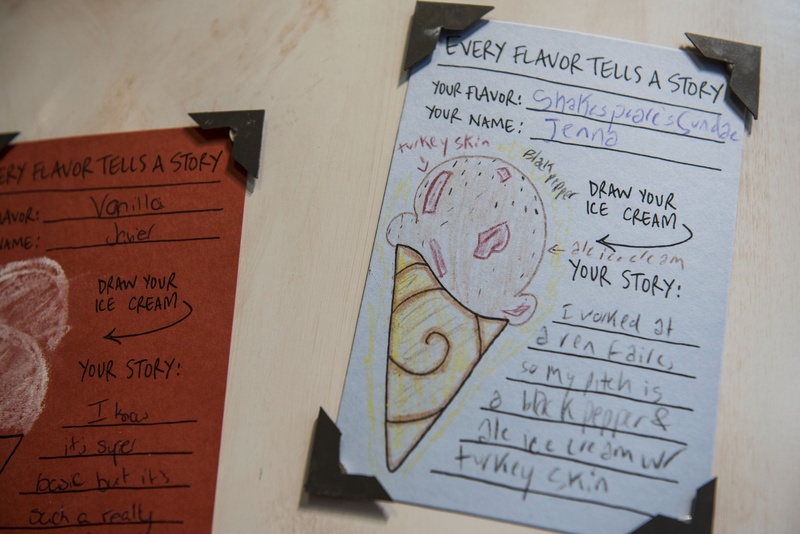 ERY FLAVOR TELLS A STORY
AVOR: Vanilla
NAME: Javier
DRAW YOUR
ICE CREAM
YOUR STORY:
I know
it's super
basic but it's
such a really
EVERY FLAVOR TELLS A STORY
YOUR FLAVOR: Shakespeare's Sundae
YOUR NAME: Jenna
turkey skin
Black
pepper
DRAW YOUR
ICE CREAM
ale ice cream
YOUR STORY:
I worked at
a ren faire,
so my pitch is
a black pepper &
ale ice cream w/
turkey skin